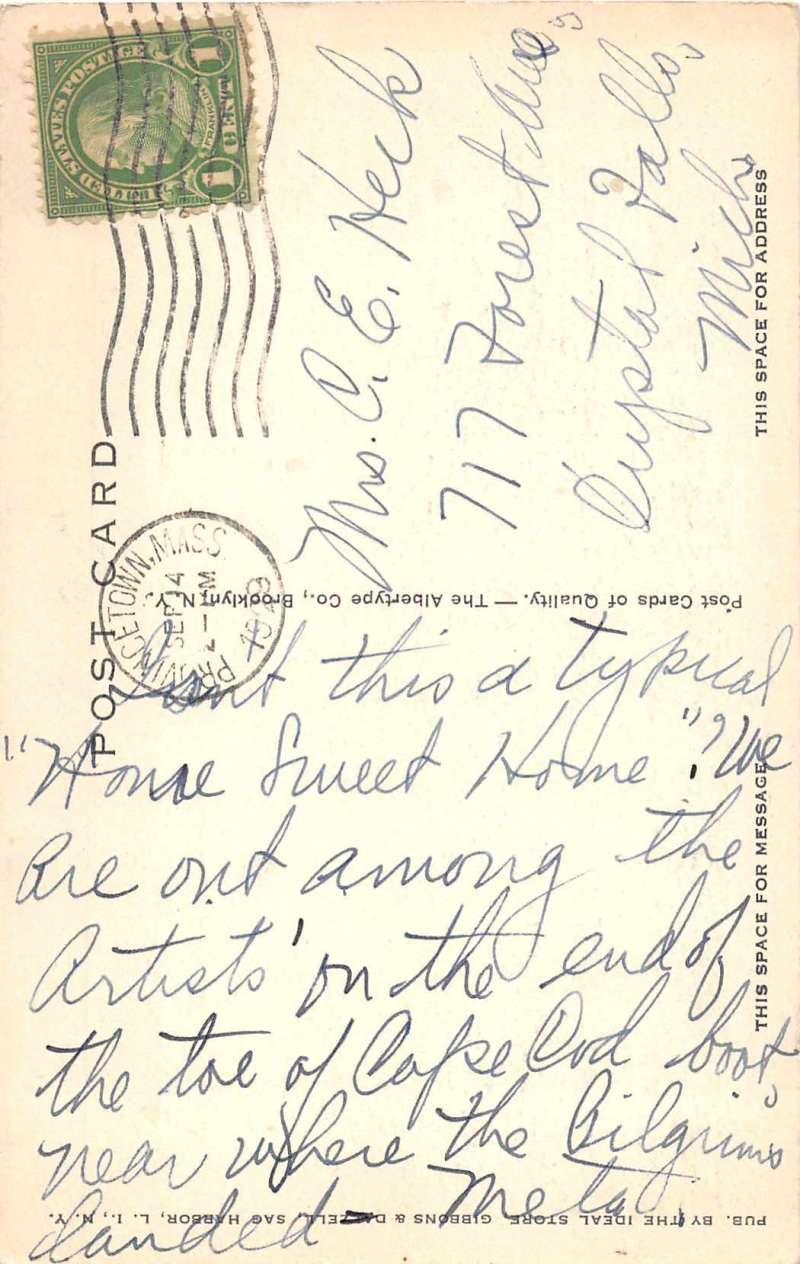 UNITED STATES POSTAGE
FRANKLIN
1 CENT 1
POST CARD
PROVINCETOWN, MASS.
SEP 14
PM
Mrs. C. E. Heck
717 Forest Ave,
Crystal Falls,
Mich.
THIS SPACE FOR ADDRESS
Post Cards of Quality. — The Albertype Co., Brooklyn, N.Y.
THIS SPACE FOR MESSAGE
Isn't this a typical
"Home Sweet Home"? We
are out among the
Artists' on the end of
the toe of Cape Cod boot,
near where the Pilgrims
landed — Meta
PUB. BY THE IDEAL STORE, GIBBONS & DALZELL, SAG HARBOR, L. I., N. Y.